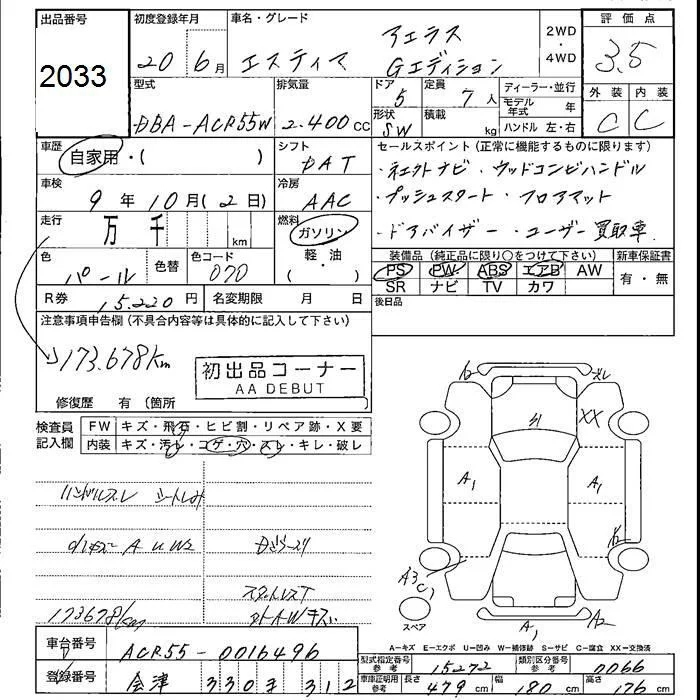 出品番号
2033
初度登録年月
20 6月
車名・グレード
エスティマ アエラス Gエディション
2WD・4WD
評価点
3.5
型式
DBA-ACR55W
排気量
2.400cc
ドア
5
定員
7人
形状
SW
積載
kg
ディーラー・並行
モデル年式 年
ハンドル 左・右
外装 内装
C C
車歴
自家用・( )
シフト
DAT
車検
9年10月(2日)
冷房
AAC
走行
万 千 km
燃料
ガソリン
軽・油
( )
色
パール
色替
色コード
070
R券 15.220円
名変期限 月 日
セールスポイント(正常に機能するものに限ります)
・ネエクトナビ・ウッドコンビハンドル
・プッシュスタート・フロアマット
・ドアバイザー・ユーザー買取車
装備品(純正品に限り○をつけて下さい)
新車保証書
PS PW ABS エアB AW
SR ナビ TV カワ
有・無
後日品
注意事項申告欄(不具合内容等は具体的に記入して下さい)
173.678km
初出品コーナー
AA DEBUT
修復歴 有(箇所
検査員記入欄
FW キズ・飛石・ヒビ割・リペア跡・X要
内装 キズ・汚レ・コゲ・穴・スレ・キレ・破レ
ハンドルスレ シートしみ
A U W2
173678km
AWキズ
H
XX
A1
A1
A3
C1
A1
A2
スペア
A-キズ E-エクボ U-凹み W-補修跡 S-サビ C-腐食 XX-交換済
車台番号
ACR55-0016496
登録番号
会津 330 す 312
型式指定番号 参考
15272
類別区分番号 参考
0066
車庫証明用 参考
長さ 479cm
幅 180cm
高さ 176cm